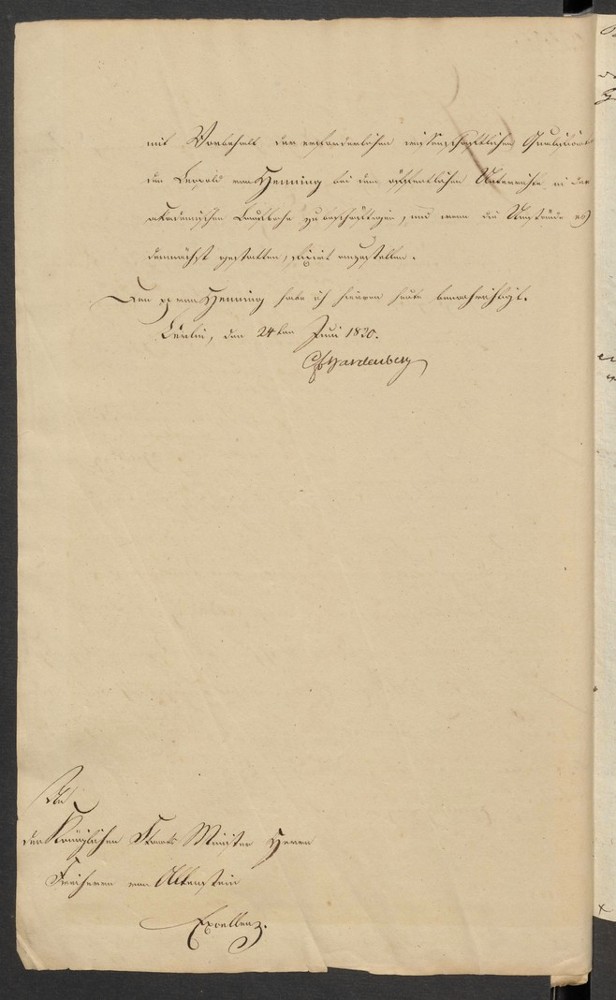 mit Vorbehalt der erforderlichen wissenschaftlichen Qualification
den Leopold von Henning bei dem öffentlichen Unterrichte in der
akademischen Laufbahn zu beschäftigen, und wenn die Umstände es
demnächst gestatten, fixirt anzustellen.
Den pp von Henning habe ich hievon heute benachrichtigt.
Berlin, den 24ten Juni 1820.
CFvHardenberg
An
des Königlichen Staats Minister Herrn
Freiherrn von Altenstein
Excellenz.